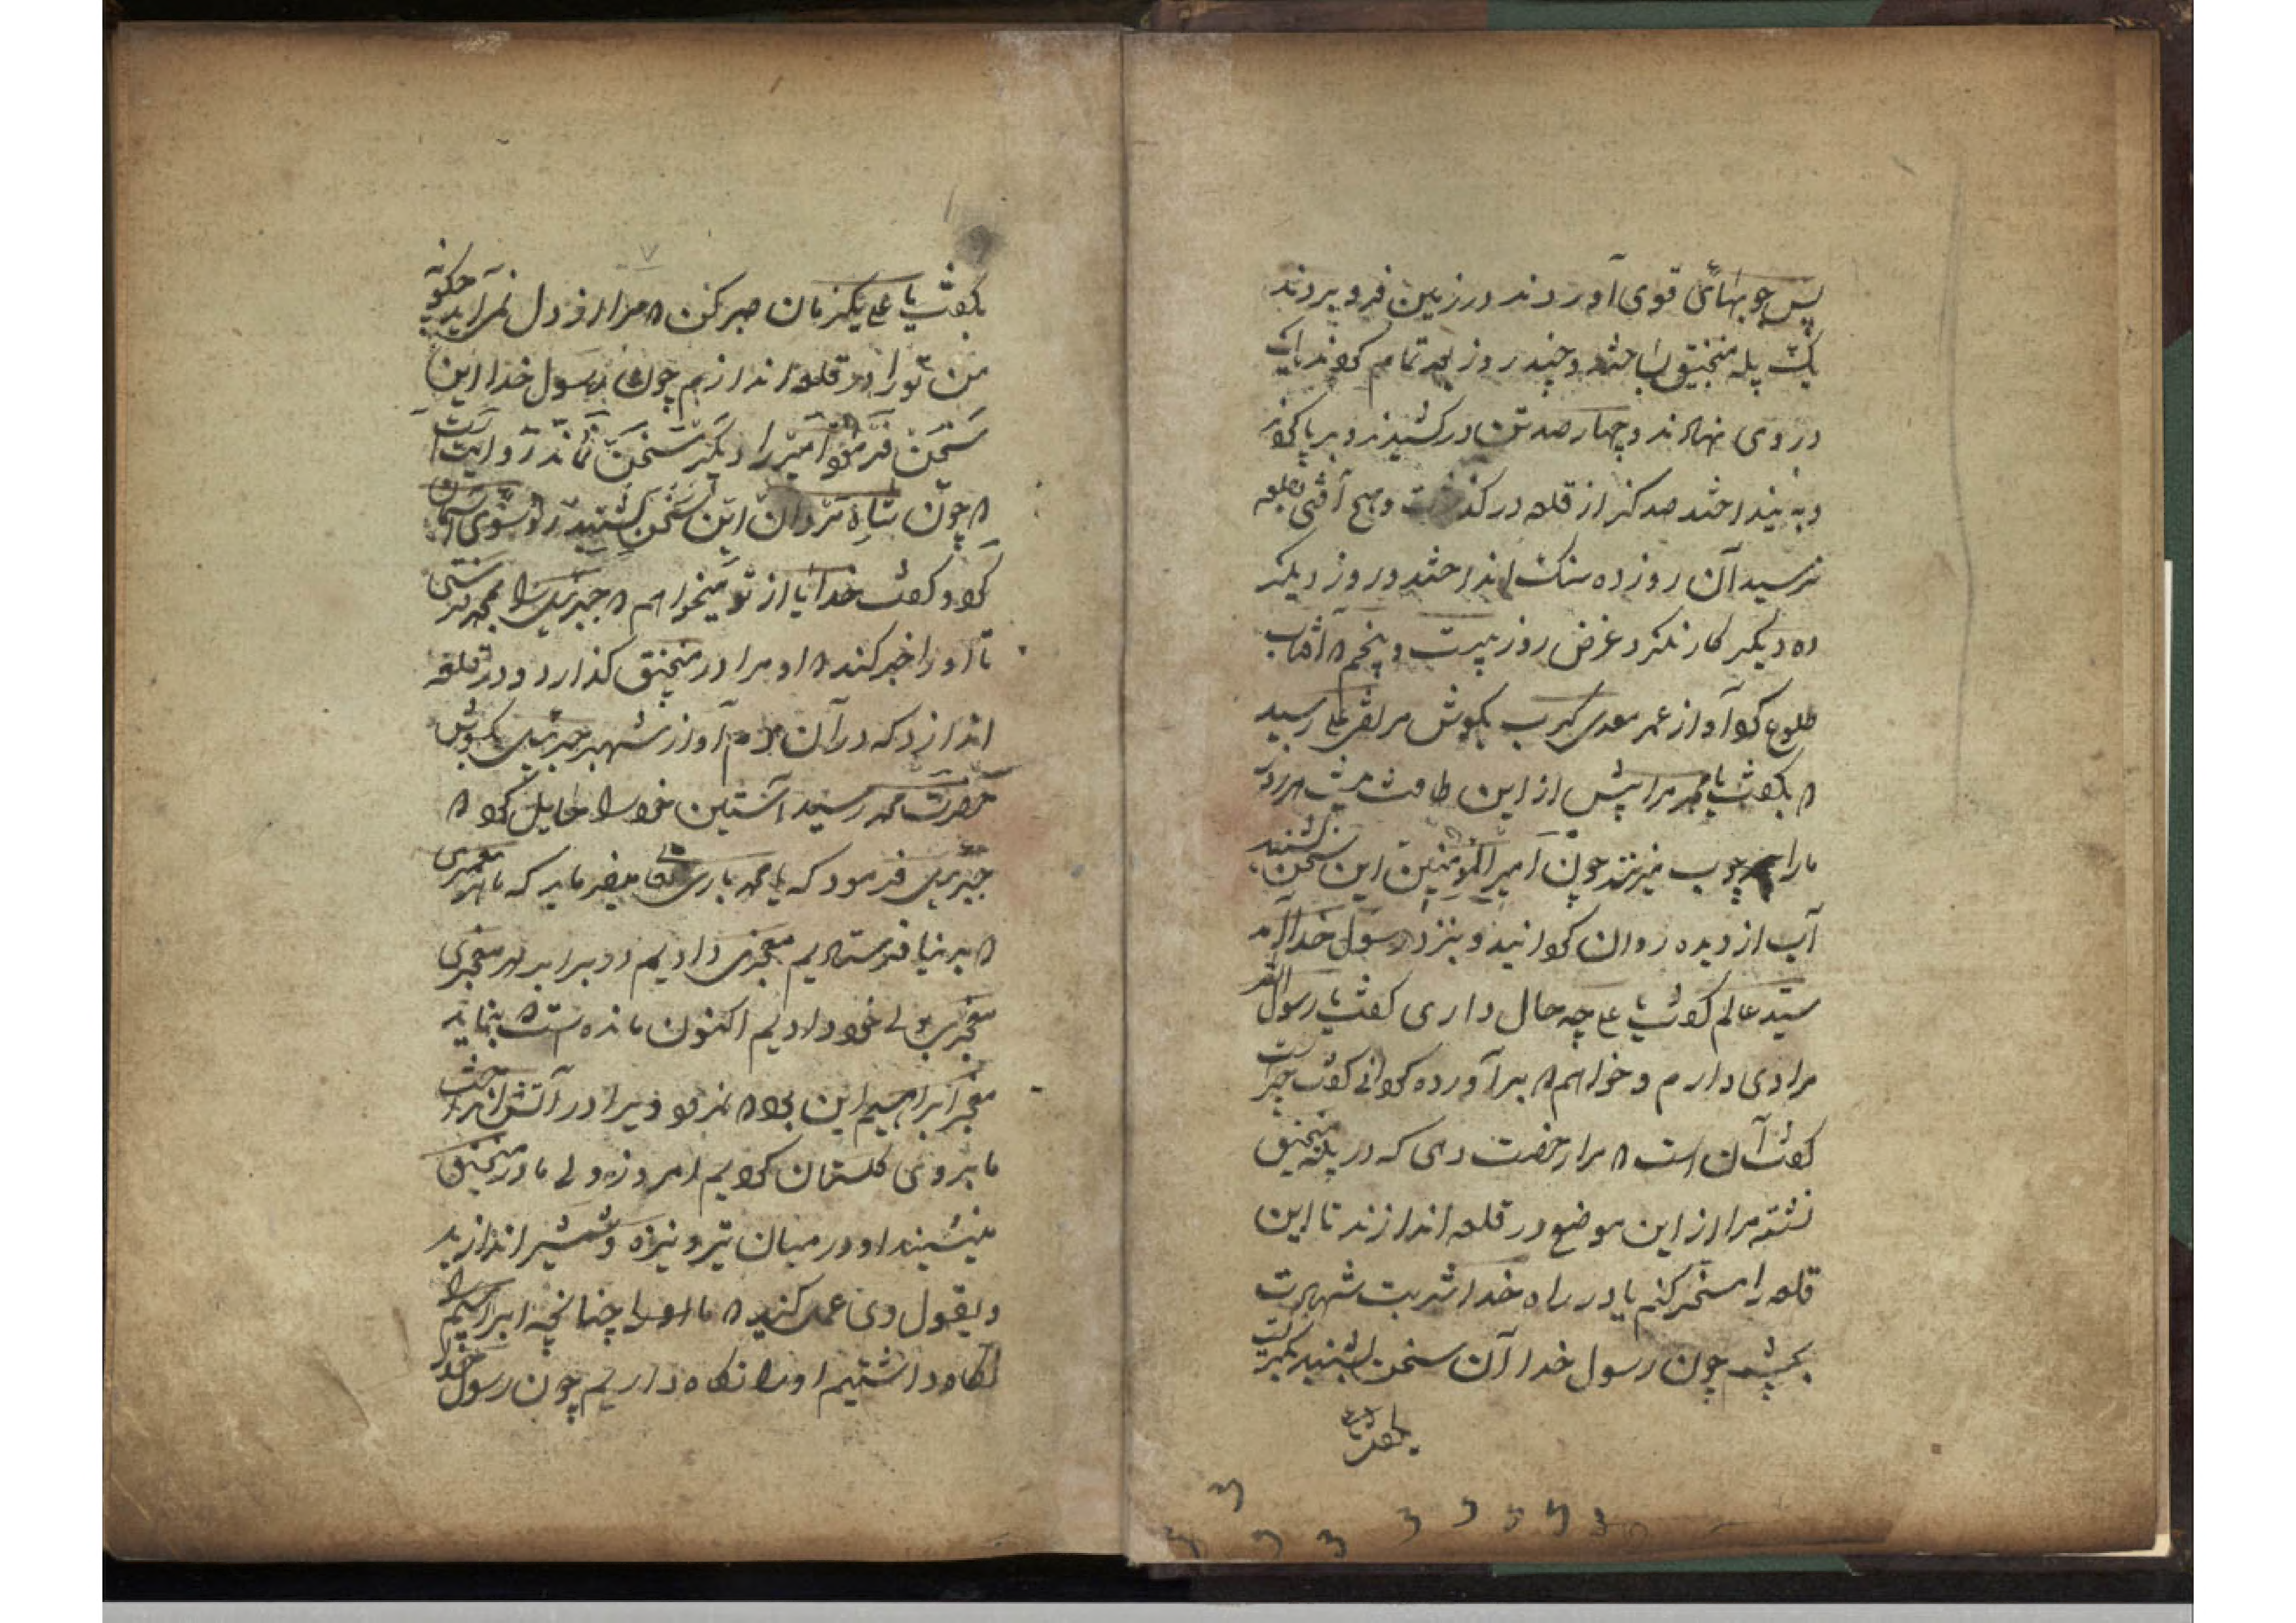 پس چوبهائی قوی آوردند در زمین فرو بردند
یک پله منجنیق بساختند و چند روز بعد تمام کردند
در وی نهادند و چهار صد تن در کشیدند و بر پا کردند
و به بینداختند صد کز از قلعه در کذشت و هیچ آفتی بقلعه
نرسید آن روز ده سنک انداختند و روز دیکر
ده دیکر کار نکرد غرض روز بیست و پنجم که آفتاب
طلوع کرد آواز عمر معدی کرب بکوش مرتضی علی رسید
که بکفت یا محمد مرا پیش از این طاقت نیست هر روز
مارا چوب میزنند چون امیر المؤمنین این سخن شنید
آب از دیده روان کردانید و نزد رسول خدا آمد
سید عالم کفت یا علی چه حال داری کفت یا رسول الله
مرادی دارم و خواهم که برآورده کردانی کفت چیست
کفت آن است که مرا رخصت دهی که در پله منجنیق
نشسته مرا از این موضع در قلعه اندازند تا این
قلعه را مسخر کنم یا در راه خدا شربت شهادت
بچشم چون رسول خدا آن سخن بشنید بکریست
بکفت یا
بکفت یا علی یکزمان صبر کن که مرا از دل نمیآید چکونه
من تو را در قلعه اندازم چون رسول خدا این
سخن فرمود امیر را دیکر سخن نماند روایت است
که چون شاه مردان این سخن بشنید رو بسوی آسمان
کرد و کفت خدایا از تو میخواهم که جبرئیل را بمحمد فرستی
تا او را خبر کند که او مرا در منجنیق کذارد و در قلعه
اندازد که در آن دم آواز شهپر جبرئیل بکوش
حضرت محمد رسید آستین خود را حایل کرد که
جبرئیل فرمود که یا محمد باری تعالی میفرماید که ما هر پیغمبری
که بدنیا فرستادیم معجزی دادیم و در برابر هر معجزی
معجزی بولی خود دادیم اکنون مانده است که بنماید
معجز ابراهیم این بود که نمرود ویرا در آتش انداخت
ما بر وی کلستان کردیم امروز ولی ما در منجنیق
نشیند او در میان تیر و نیزه و شمشیر اندازید
و بقول وی عمل کنید که ما او را چنانچه ابراهیم را
نکاه داشتیم او را نکاه داریم چون رسول خدا